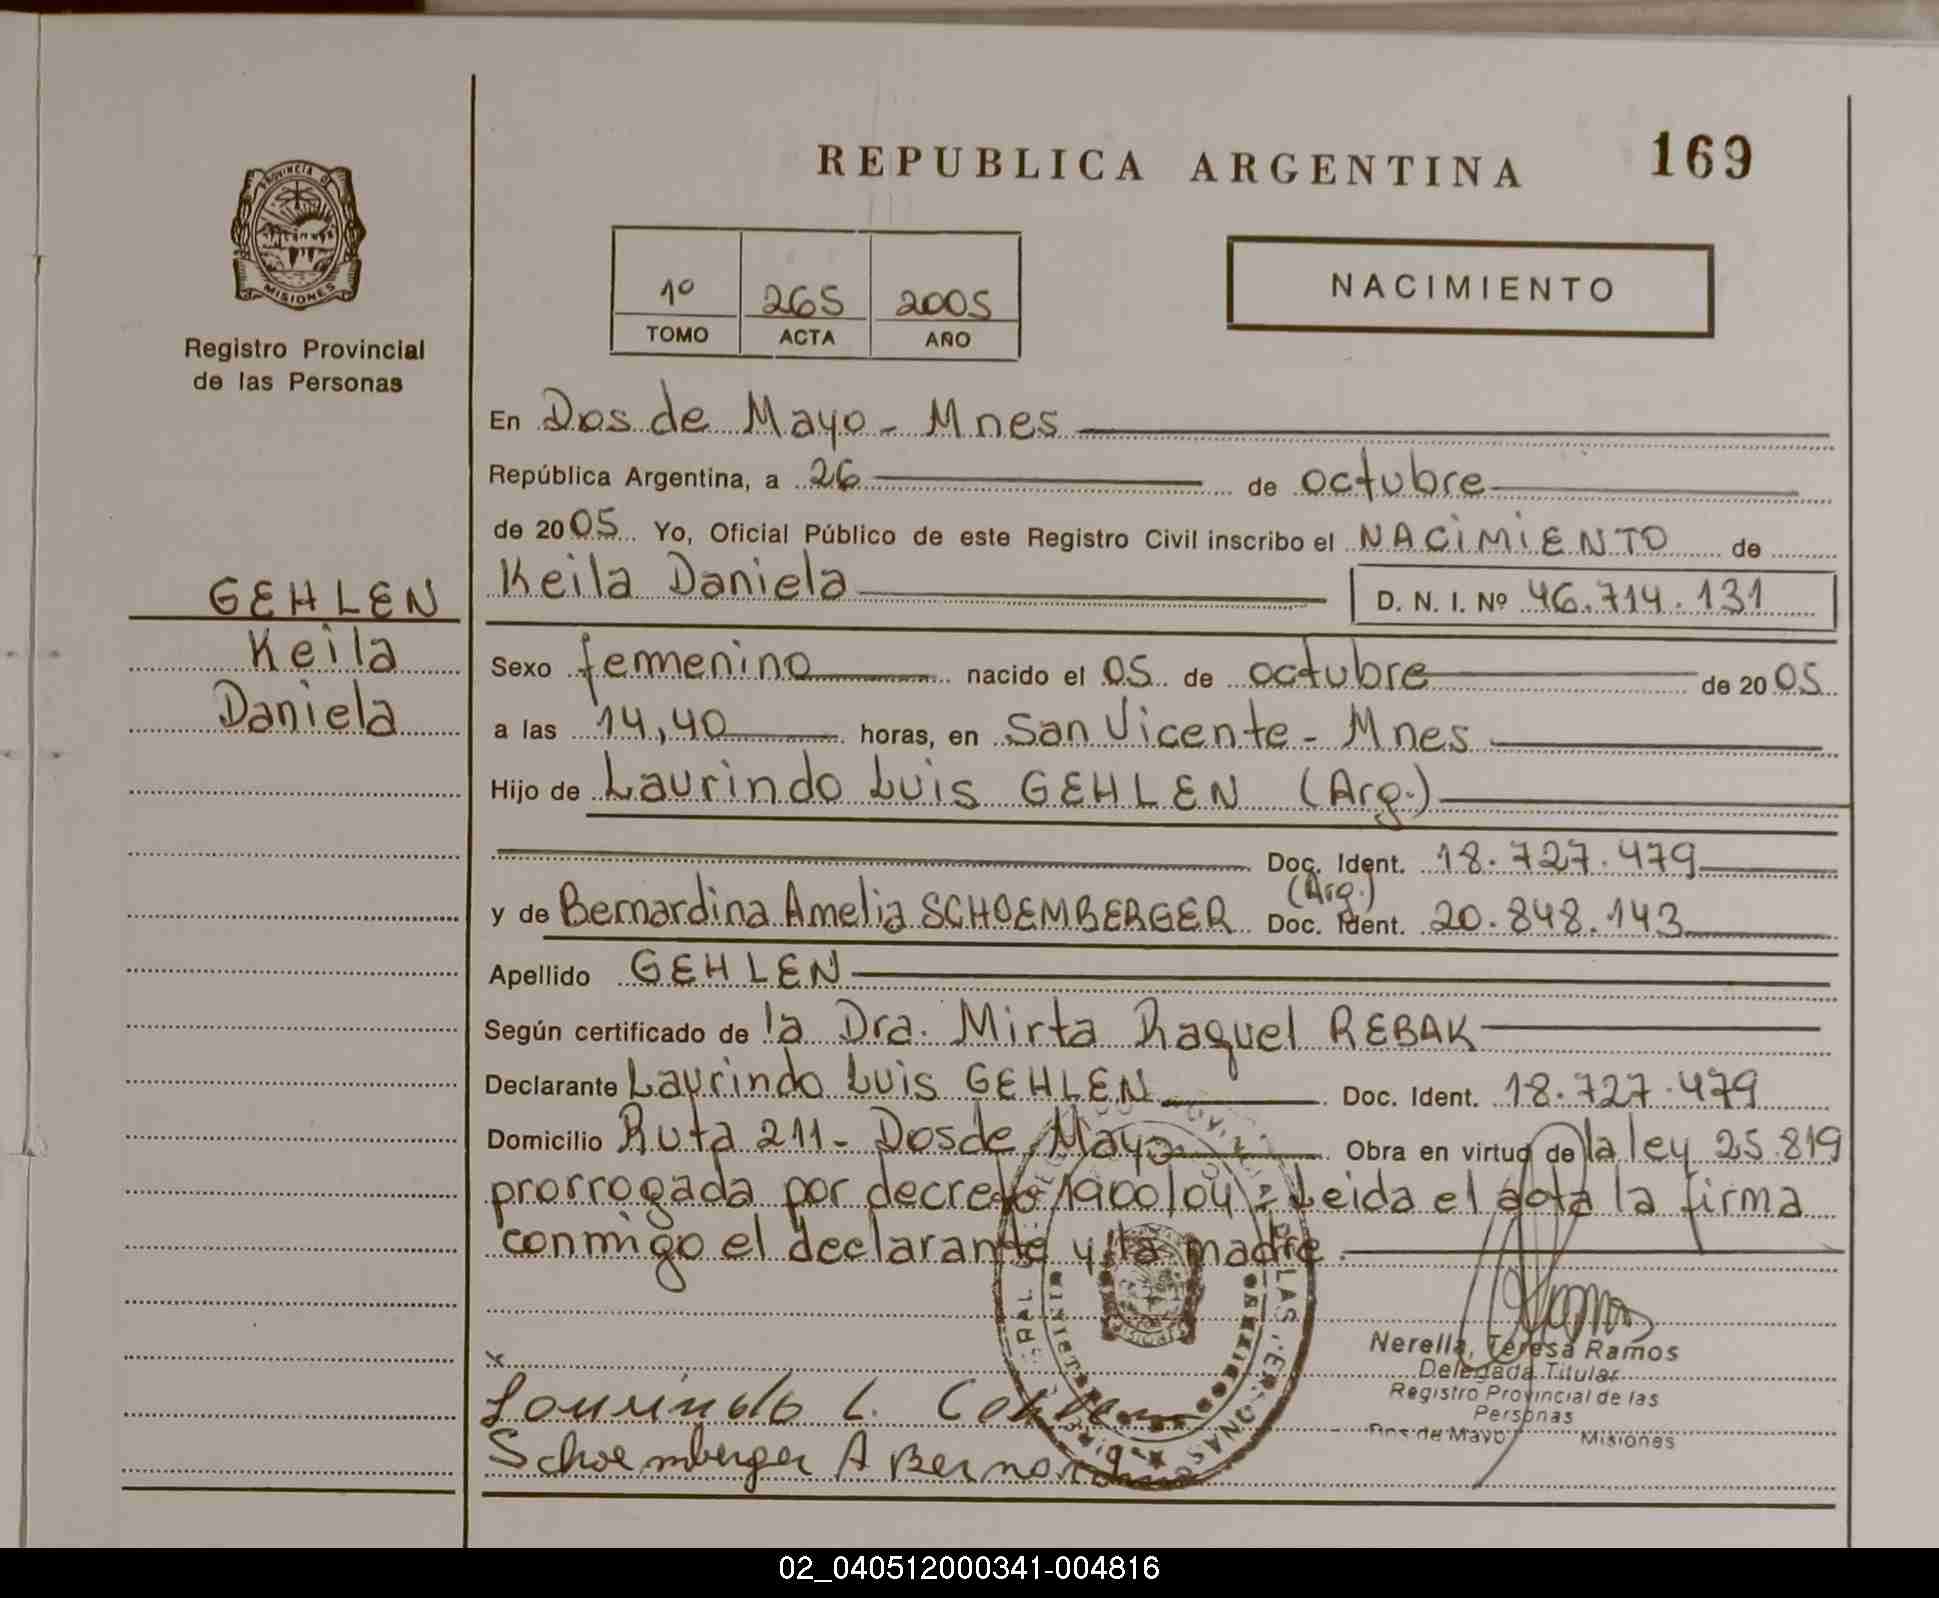 REPUBLICA ARGENTINA 169
PROVINCIA D
MISIONES
Registro Provincial
de las Personas
1º 265 2005
TOMO ACTA AÑO
NACIMIENTO
En Dos de Mayo - Mnes
República Argentina, a 26 de octubre
de 2005 Yo, Oficial Público de este Registro Civil inscribo el NACIMIENTO de
Keila Daniela D. N. I. Nº 46.714.131
GEHLEN
Keila
Daniela
Sexo femenino nacido el 05 de octubre de 2005
a las 14,40 horas, en San Vicente - Mnes
Hijo de Laurindo Luis GEHLEN (Arg.)
Doc. Ident. 18.727.479
y de Bernardina Amelia SCHOEMBERGER (Arg.) Doc. Ident. 20.848.143
Apellido GEHLEN
Según certificado de la Dra. Mirta Raquel REBAK
Declarante Laurindo Luis GEHLEN Doc. Ident. 18.727.479
Domicilio Ruta 211 - Dos de Mayo Obra en virtud de la ley 25.819
prorrogada por decreto 1900/04 - Leida el acta la firma
conmigo el declarante y la madre.
x
Laurindo L.
Schoemberger A Bernardina
Nerella, Teresa Ramos
Delegada Titular
Registro Provincial de las
Personas
Dos de Mayo Misiones
02_040512000341-004816